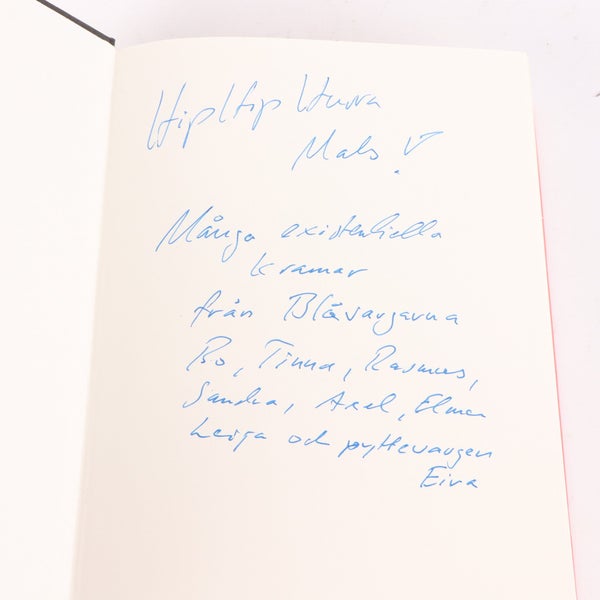 Hip Hip Hurra
Mats!
Många existentiella
kramar
från Blåvargarna
Bo, Tinna, Rasmus,
Sandra, Axel, Elmer
Leija och pyttevargen
Eira